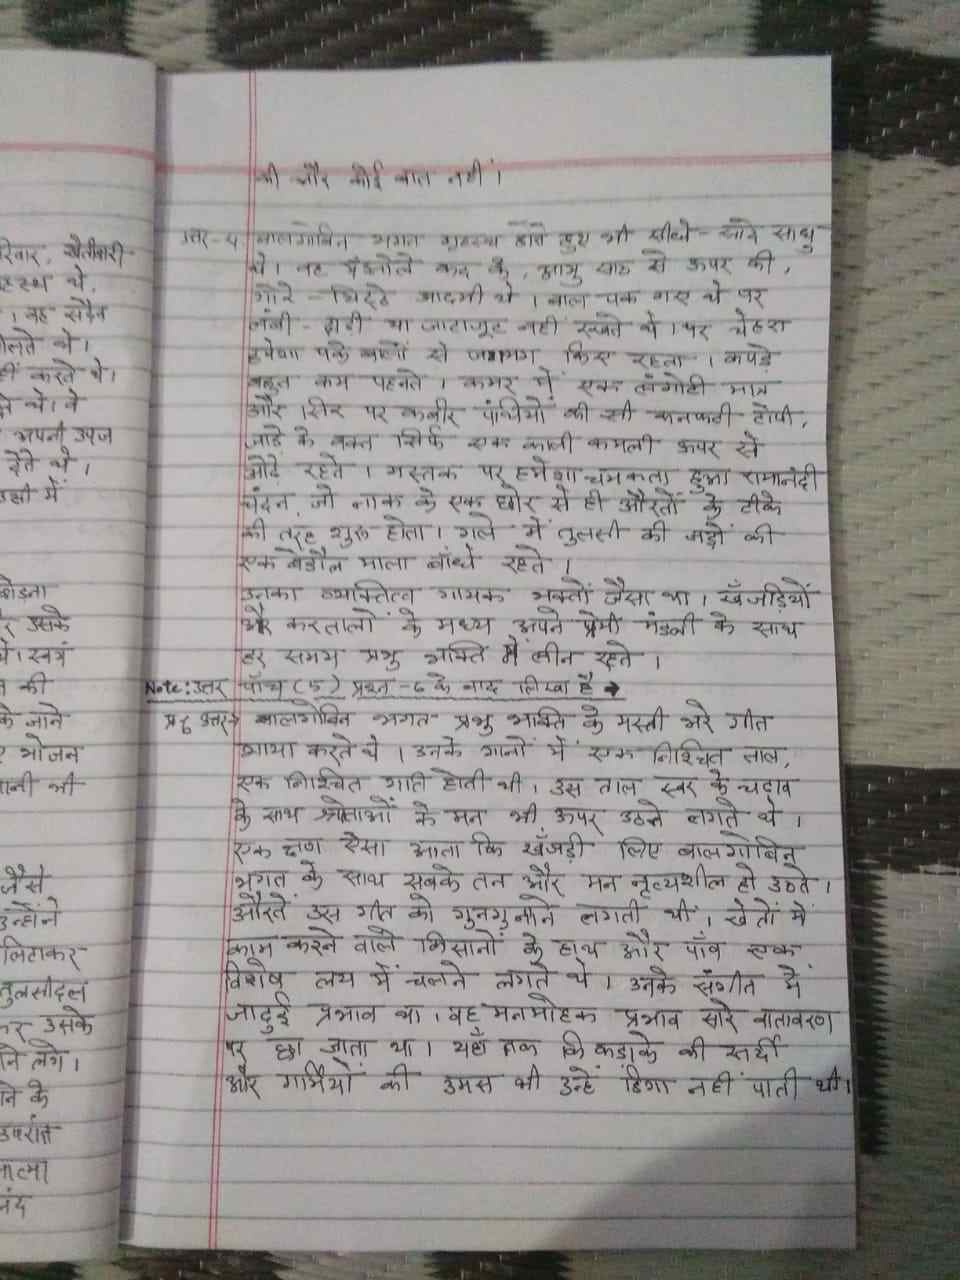 की और कोई बात नहीं।
उत्तर-4 बालगोबिन भगत गृहस्थ होते हुए भी सीधे-सादे साधु
थे। वह मँझोले कद के, आयु साठ से ऊपर की,
गोरे-चिट्टे आदमी थे। बाल पक गए थे पर
लंबी-दाढ़ी या जटाजूट नहीं रखते थे। पर चेहरा
हमेशा पके बालों से जगमग किए रहता। कपड़े
बहुत कम पहनते। कमर में एक लंगोटी मात्र
और सिर पर कबीर पंथियों की सी कनफटी टोपी,
जाड़े के वक्त सिर्फ एक काली कमली ऊपर से
ओढ़े रहते। मस्तक पर हमेशा चमकता हुआ रामानंदी
चंदन, जो नाक के एक छोर से ही औरतों के टीके
की तरह शुरू होता। गले में तुलसी की जड़ों की
एक बेडौल माला बाँधे रहते।
उनका व्यक्तित्व गायक भक्तों जैसा था। खँजड़ियों
और करतालों के मध्य अपने प्रेमी मंडली के साथ
हर समय प्रभु भक्ति में लीन रहते।
Note: उत्तर पाँच (5) प्रश्न-6 के बाद लिखा है →
प्र6 उत्तर→ बालगोबिन भगत प्रभु भक्ति के मस्ती भरे गीत
गाया करते थे। उनके गानों में एक निश्चित ताल,
एक निश्चित गति होती थी। उस ताल स्वर के चढ़ाव
के साथ श्रोताओं के मन भी ऊपर उठने लगते थे।
एक क्षण ऐसा आता कि खँजड़ी लिए बालगोबिन
भगत के साथ सबके तन और मन नृत्यशील हो उठते।
औरतें उस गीत को गुनगुनाने लगती थीं। खेतों में
काम करने वाले किसानों के हाथ और पाँव एक
विशेष लय में चलने लगते थे। उनके संगीत में
जादुई प्रभाव था। वह मनमोहक प्रभाव सारे वातावरण
पर छा जाता था। यहाँ तक कि कड़ाके की सर्दी
और गर्मियों की उमस भी उन्हें डिगा नहीं पाती थी।